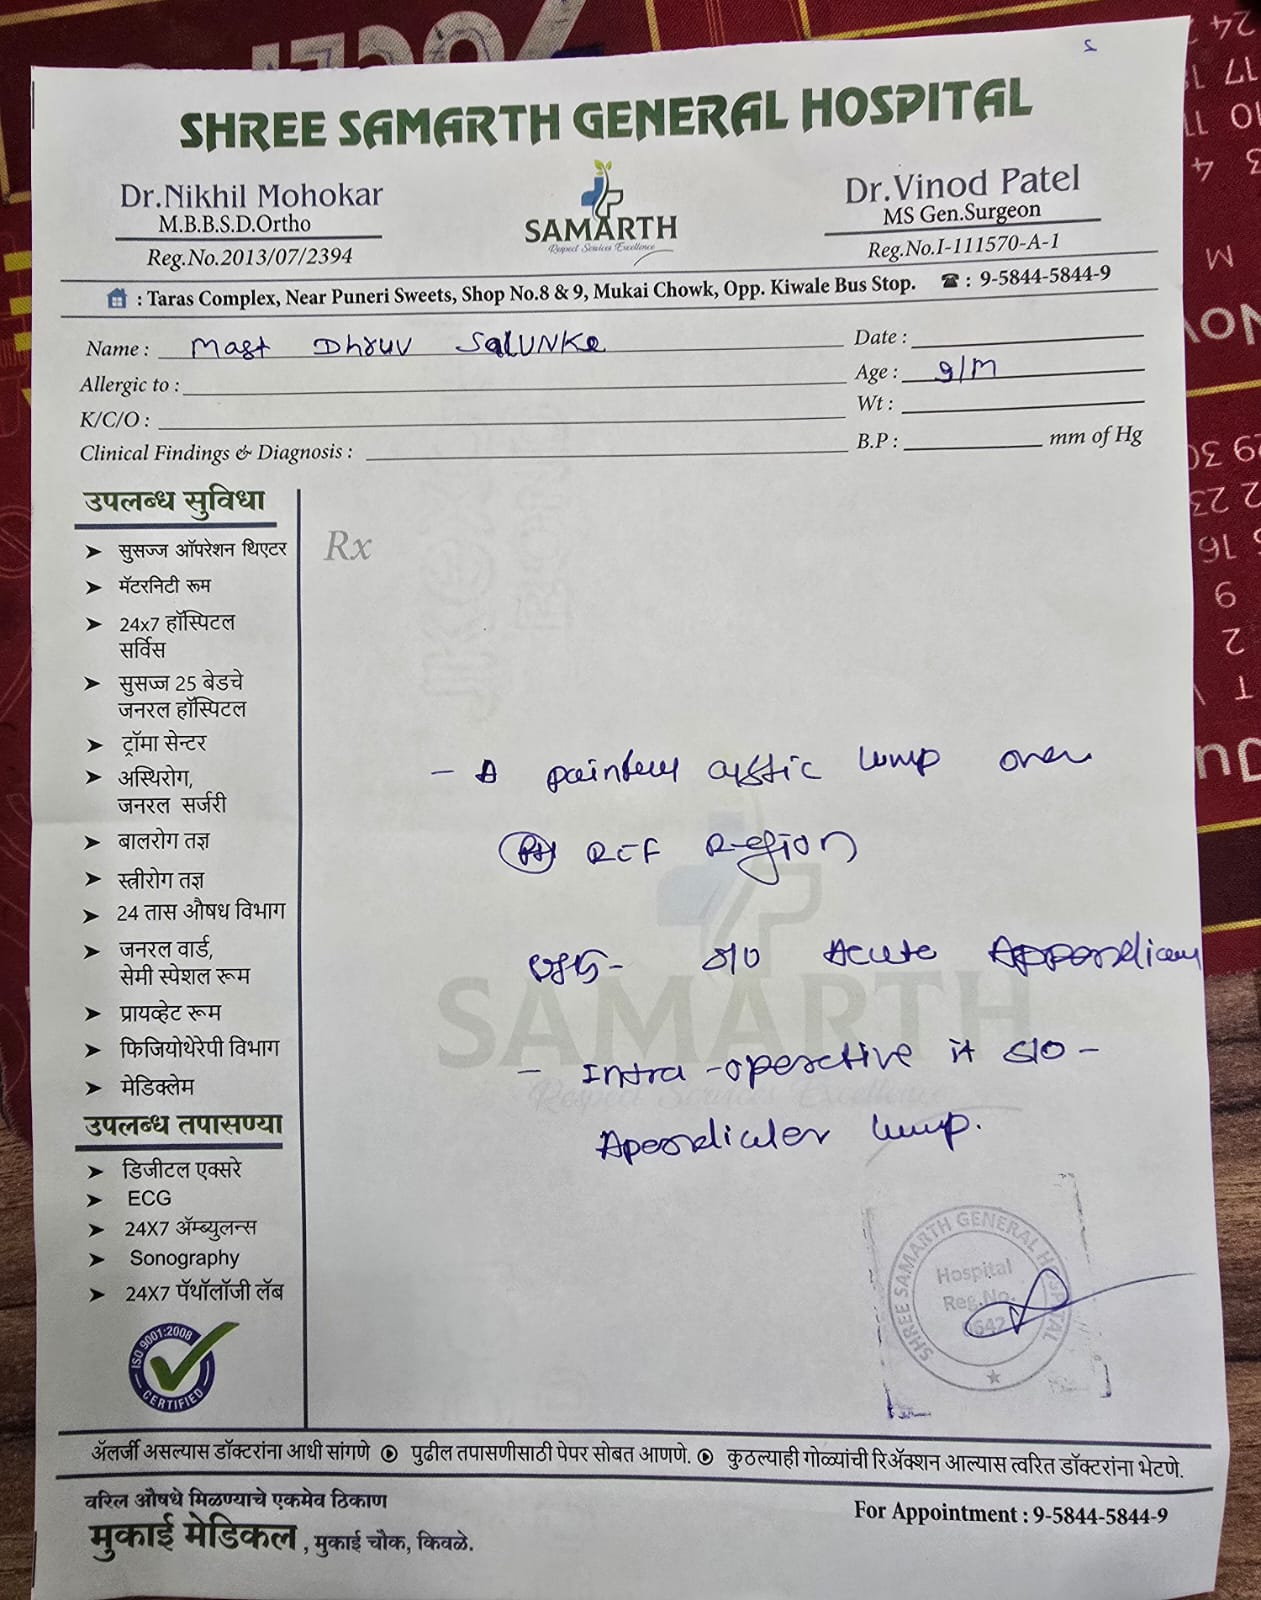 2
SHREE SAMARTH GENERAL HOSPITAL
Dr.Nikhil Mohokar
M.B.B.S.D.Ortho
Reg.No.2013/07/2394
SAMARTH
Respect Services Excellence
Dr.Vinod Patel
MS Gen.Surgeon
Reg.No.I-111570-A-1
: Taras Complex, Near Puneri Sweets, Shop No.8 & 9, Mukai Chowk, Opp. Kiwale Bus Stop. ☎ : 9-5844-5844-9
Name : Mast Dhruv Salunke Date :
Allergic to : Age : 9/M
K/C/O : Wt :
Clinical Findings & Diagnosis : B.P : mm of Hg
उपलब्ध सुविधा
➤ सुसज्ज ऑपरेशन थिएटर
➤ मॅटरनिटी रूम
➤ 24x7 हॉस्पिटल
सर्विस
➤ सुसज्ज 25 बेडचे
जनरल हॉस्पिटल
➤ ट्रॉमा सेन्टर
➤ अस्थिरोग,
जनरल सर्जरी
➤ बालरोग तज्ञ
➤ स्त्रीरोग तज्ञ
➤ 24 तास औषध विभाग
➤ जनरल वार्ड,
सेमी स्पेशल रूम
➤ प्रायव्हेट रूम
➤ फिजियोथेरेपी विभाग
➤ मेडिक्लेम
उपलब्ध तपासण्या
➤ डिजीटल एक्सरे
➤ ECG
➤ 24X7 ॲम्ब्युलन्स
➤ Sonography
➤ 24X7 पॅथॉलॉजी लॅब
ISO 9001:2008
CERTIFIED
Rx
- A cystic lump over
RIF Region
S/O Acute
- Intra-operative it S/O -
lump.
SAMARTH
Respect Services Excellence
SHREE SAMARTH GENERAL HOSPITAL
Hospital
Reg.No.
ॲलर्जी असल्यास डॉक्टरांना आधी सांगणे पुढील तपासणीसाठी पेपर सोबत आणणे. कुठल्याही गोळ्यांची रिॲक्शन आल्यास त्वरित डॉक्टरांना भेटणे.
वरिल औषधे मिळण्याचे एकमेव ठिकाण
मुकाई मेडिकल , मुकाई चौक, किवळे.
For Appointment : 9-5844-5844-9